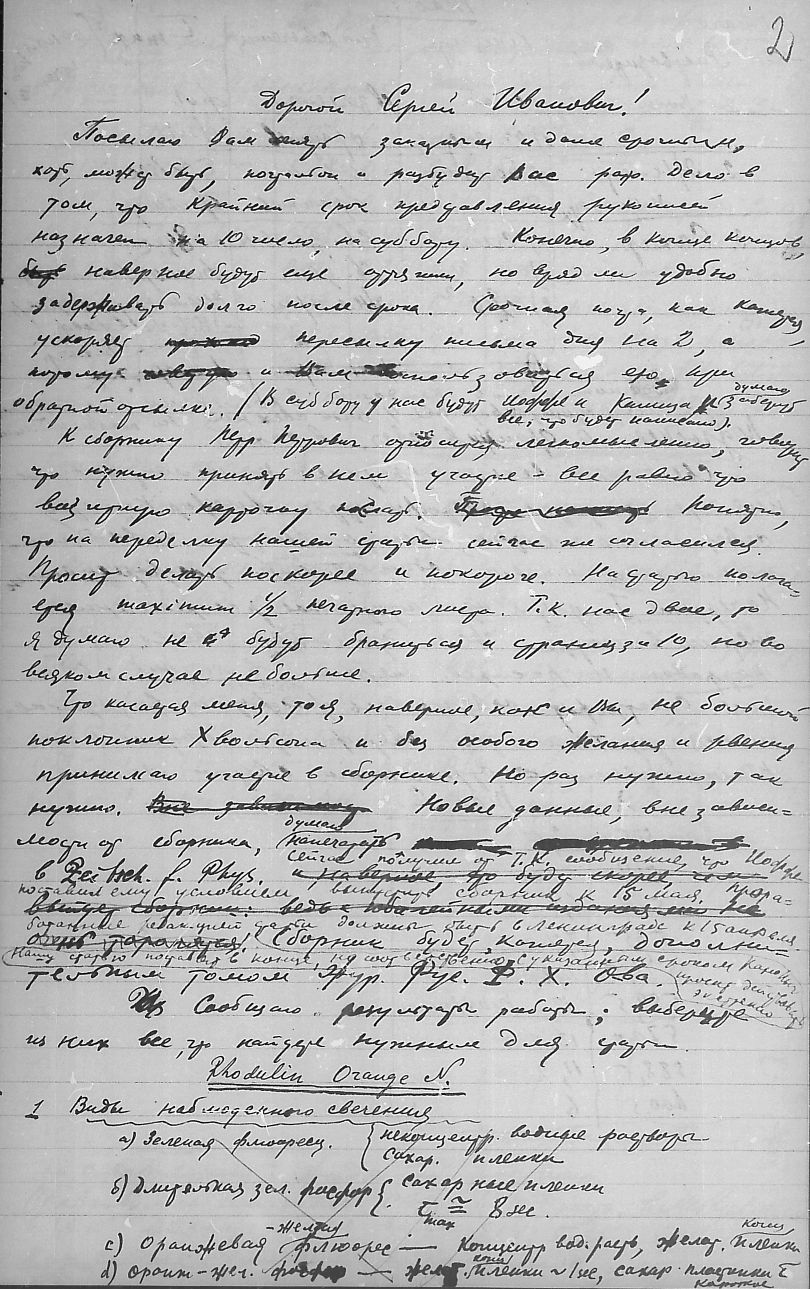 2
Дорогой Сергей Иванович!
Посылаю Вам заказным и даже срочным,
хоть, может быть, почтальон и разбудит Вас рано. Дело в
том, что крайний срок представления рукописей
назначен на 10 число, на субботу. Конечно, в конце концов,
наверное будут еще оттяжки, но вряд ли удобно
задерживать долго после срока. Срочная почта, как кажется,
ускоряет пересылку письма дня на 2, а
потому и Вам воспользоваться ею при
обратной отсылке. (В субботу у нас будут Иоффе и Капица и думаю заберут
все, что будет написано).
К сборнику Петр Петрович относится легкомысленно, говорит
что нужно принять в нем участие – все равно что
визитную карточку послать. Понятно,
что на переделку нашей статьи сейчас же согласился.
Просит делать поскорее и покороче. На статью полага-
ется maximum 1/2 печатного листа. Т.К. нас двое, то
я думаю не будут браниться и страниц за 10, но во
всяком случае не больше.
Что касается меня, то я, наверное, как и Вы, не большой
поклонник Хвольсона и без особого желания и рвения
принимаю участие в сборнике. Но раз нужно, так
нужно. Новые данные, вне зависи-
мости от сборника, думаю напечатать
сейчас получили от Т.К. сообщение, что Иоффе
в Zeitsch. f. Phys.
поставил ему условием выпустить сборник к 15 мая. Прора-
ботанные редакцией статьи должны быть в Ленинграде к 15 апреля.
Сборник будет, кажется, дополни-
Нашу статью поставят в конце, но соответственно с указанным сроком
тельным томом Жур. Рус. Ф. Х. О-ва.
просит действовать экстренно
Сообщаю результаты работы; выберете
из них все, что найдете нужным для статьи
Rhodulin Orange N.
1 Виды наблюденного свечения
a) Зеленая флюоресц. { неконцентр. водные растворы
сахар. пленки
б) Длительная зел. фосфор { сахарные пленки
τ max ≃ 8 sec.
c) Оранжевая-желтая флюорес — концентр вод. раств, желат. конц пленки
d) оранж-жел. фосфор — желат. конц пленки ~ 1 sec, сахар пластинки τ
короткое